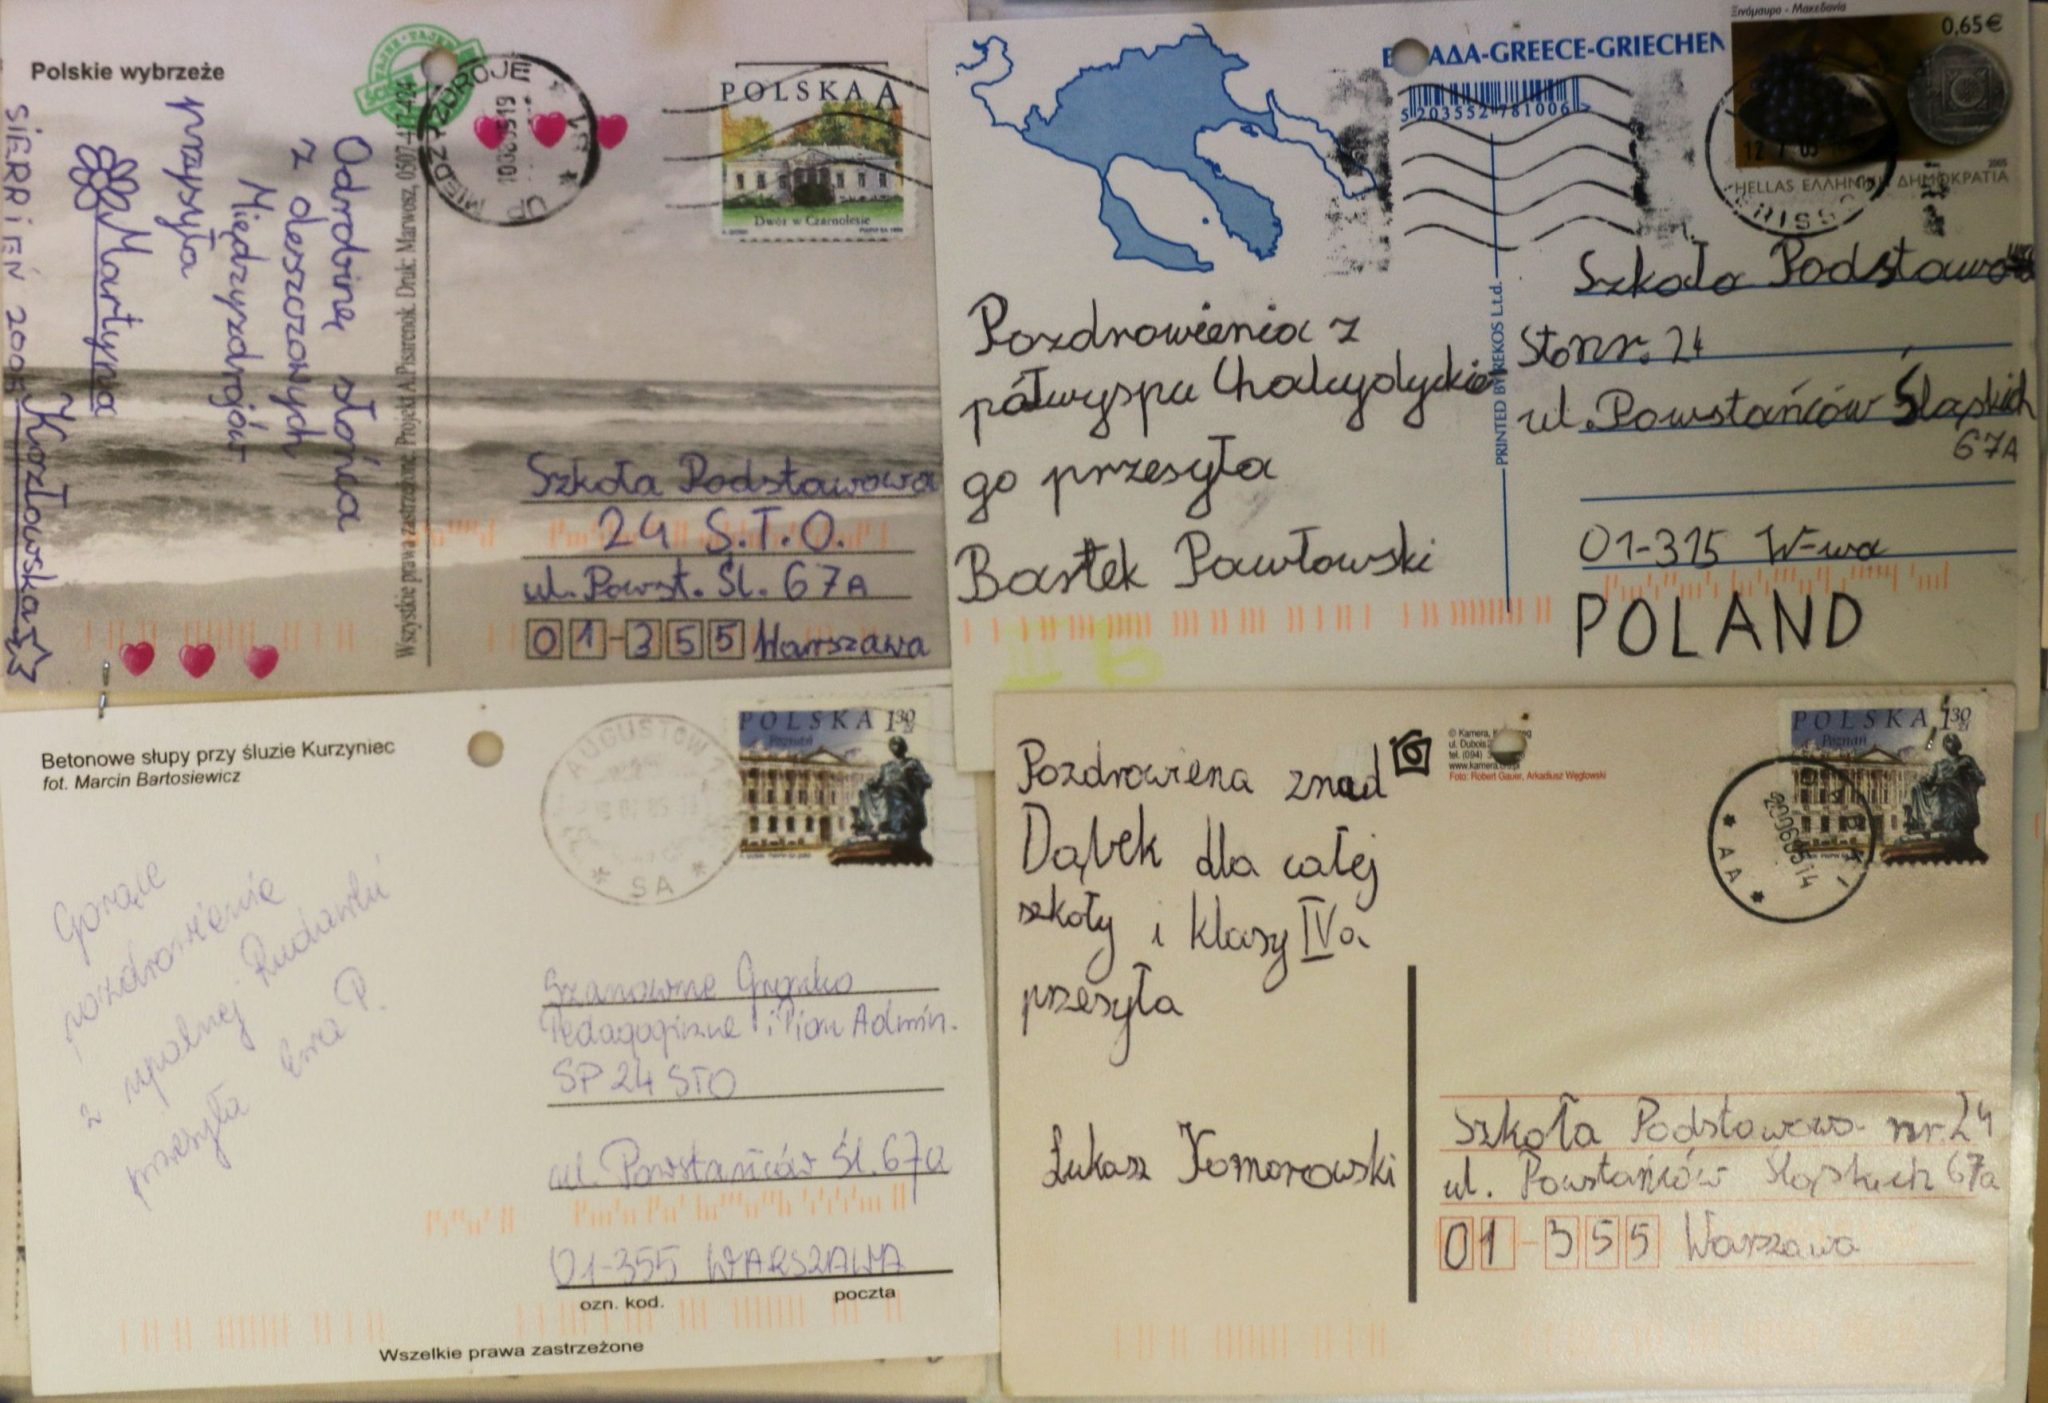 Polskie wybrzeże
Odrobinę słońca
z deszczowych
Międzyzdrojów
przysyła
Martyna
Kozłowska
SIERPIEŃ 2005
Wszystkie prawa zastrzeżone. Projekt A.Pisarenok. Druk: Marwosz, 0507-417-424
POLSKA A
Dwór w Czarnolesie
Szkoła Podstawowa
24 S.T.O.
ul. Powst. Śl. 67A
01-355 Warszawa
ΕΛΛΑΔΑ-GREECE-GRIECHEN
5 203552 781006
Ξινόμαυρο - Μακεδονία
0,65€
2005
HELLAS ΕΛΛΗΝΙΚΗ ΔΗΜΟΚΡΑΤΙΑ
Pozdrowienia z
półwyspu Chalcydyckie
go przesyła
Bartek Pawłowski
PRINTED BY REKOS L.t.d.
Szkoła Podstawowa
Sto nr. 24
ul. Powstańców Śląskich
67A
01-315 W-wa
POLAND
Betonowe słupy przy śluzie Kurzyniec
fot. Marcin Bartosiewicz
AUGUSTÓW
SA
POLSKA 130 zł
Poznań
Gorące
pozdrowienia
z upalnej Rudawki
przesyła Ewa P.
Szanowne Grono
Pedagogiczne i Pion Admin.
SP 24 STO
ul. Powstańców Śl. 67a
01-355 WARSZAWA
ozn. kod. poczta
Wszelkie prawa zastrzeżone
Pozdrowiena znad
Dąbek dla całej
szkoły i klasy IVa
przesyła
Łukasz Komorowski
Foto: Robert Gauer, Arkadiusz Węglowski
POLSKA 130 zł
Poznań
Szkoła Podstawowa nr. 24
ul. Powstańców Śląskich 67a
01-355 Warszawa